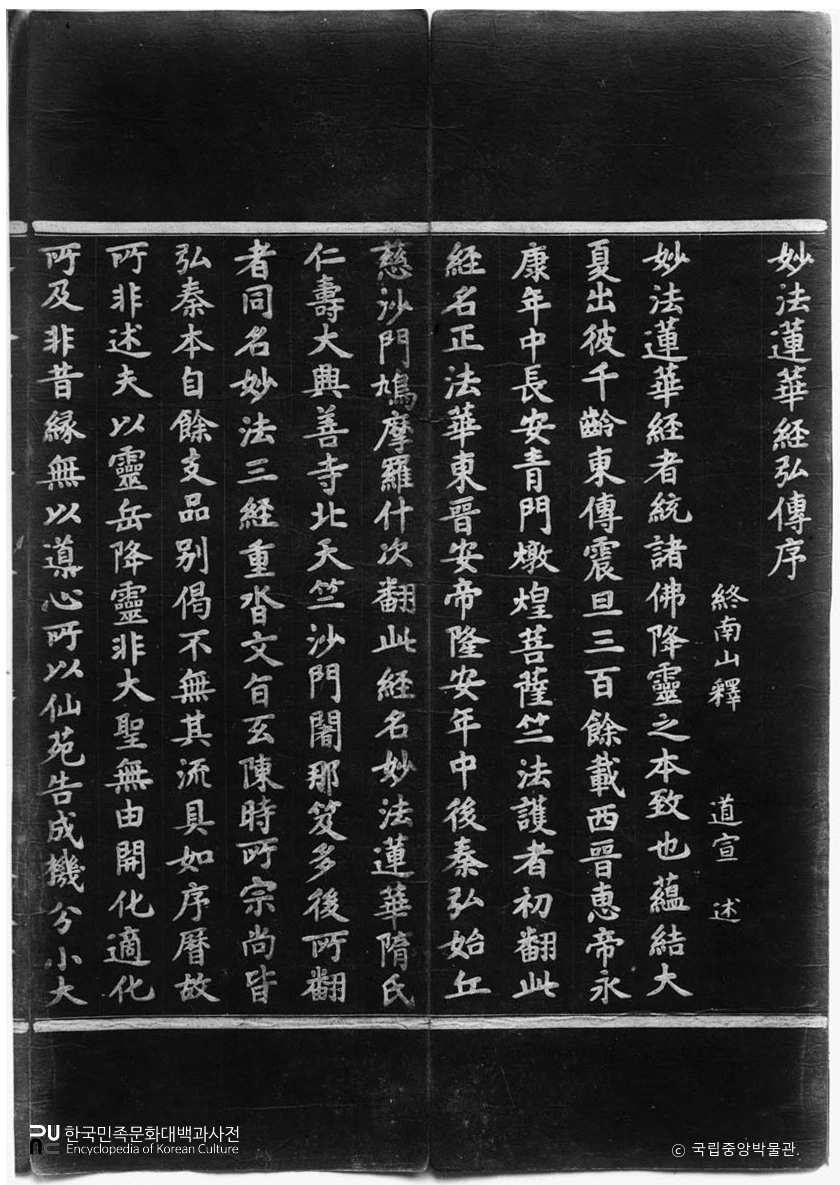 妙法蓮華経弘傳序
終南山釋 道宣 述
妙法蓮華経者統諸佛降靈之本致也蘊結大
夏出彼千齡東傳震旦三百餘載西晉惠帝永
康年中長安青門燉煌菩薩竺法護者初翻此
経名正法華東晉安帝隆安年中後秦弘始丘
慈沙門鳩摩羅什次翻此経名妙法蓮華隋氏
仁壽大興善寺北天竺沙門闍那笈多後所翻
者同名妙法三経重沓文旨互陳時所宗尚皆
弘秦本自餘支品別偈不無其流具如序曆故
所非述夫以靈岳降靈非大聖無由開化適化
所及非昔緣無以導心所以仙苑告成機分小大
한국민족문화대백과사전
Encyclopedia of Korean Culture
© 국립중앙박물관